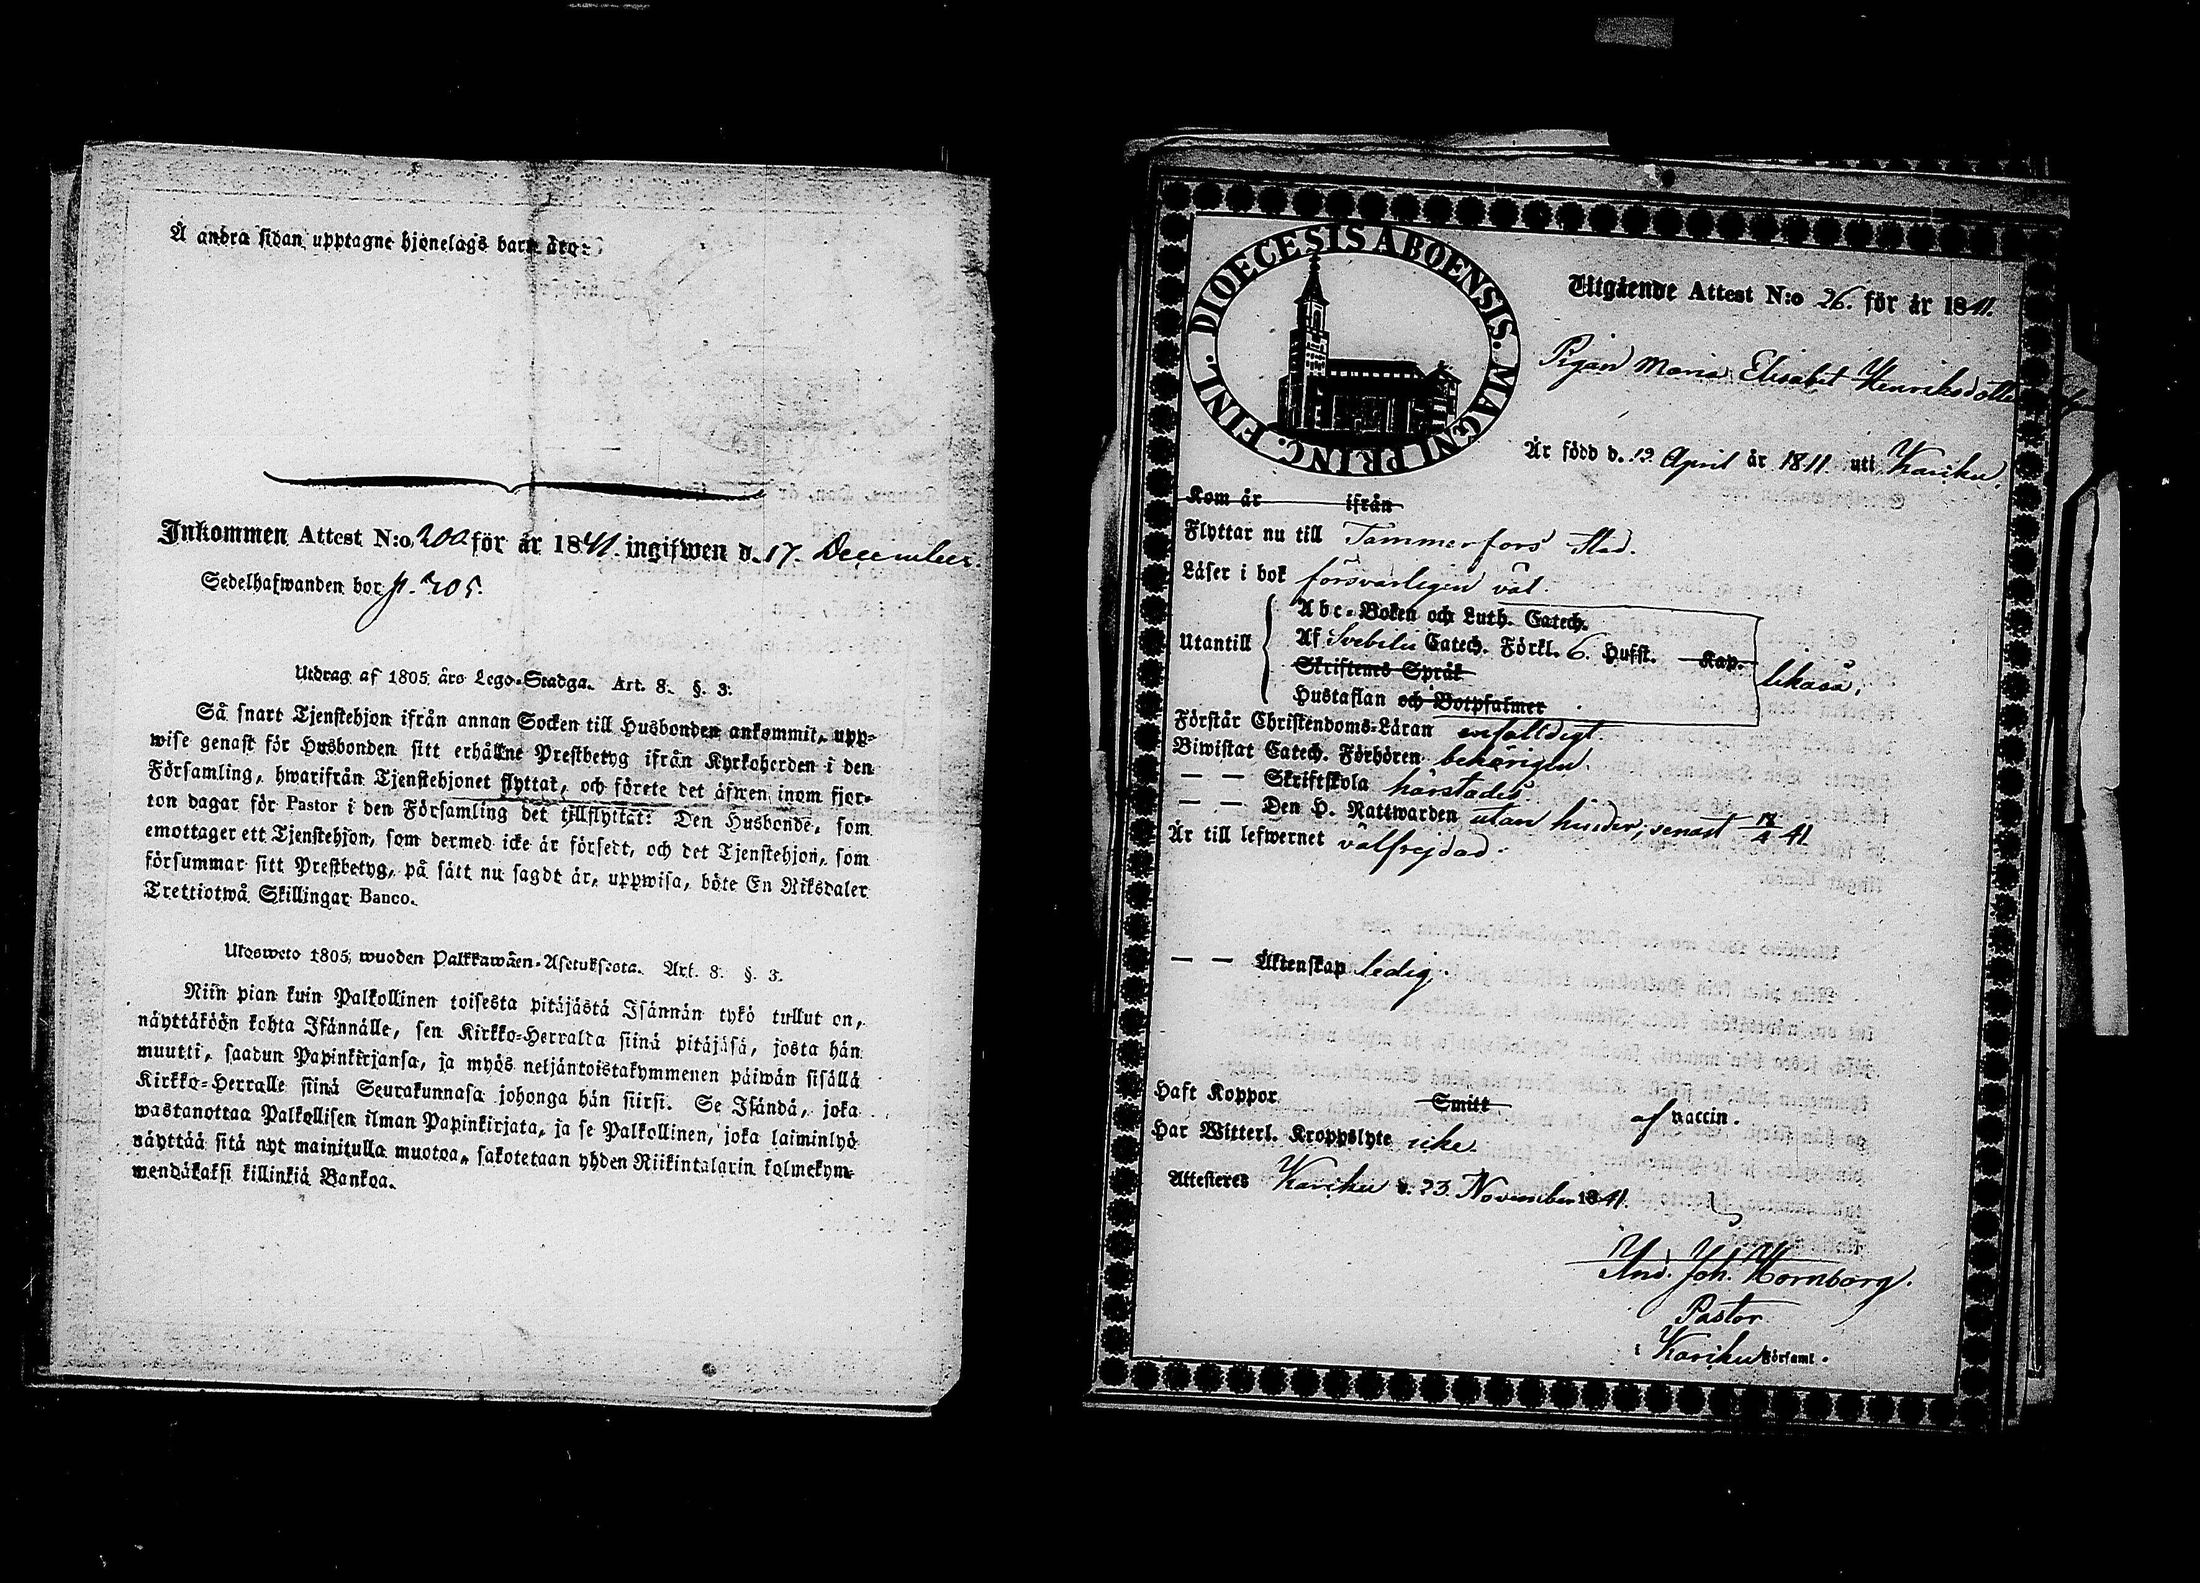 Å andra sidan upptagne hjonelags barn äro:
Inkommen Attest N:o 200 för år 1841. ingifwen d. 17. December.
Sedelhafwanden bor p. 205.
Utdrag af 1805 års Lego-Stadga. Art. 8. §. 3.
Så snart Tjenstehjon ifrån annan Socken till Husbonden ankommit, upp-
wise genast för Husbonden sitt erhållne Prestbetyg ifrån Kyrkoherden i den
Församling, hwarifrån Tjenstehjonet flyttat, och förete det äfwen inom fjor-
ton dagar för Pastor i den Församling det tillflyttat: Den Husbonde, som
emottager ett Tjenstehjon, som dermed icke är försedt, och det Tjenstehjon, som
försummar sitt Prestbetyg, på sätt nu sagdt är, uppwisa, böte En Riksdaler
Trettiotwå Skillingar Banco.
Ulosweto 1805 wuoden Palkkawäen-Asetuksesta. Art. 8. §. 3.
Niin pian kuin Palkollinen toisesta pitäjästä Isännän tykö tullut on,
näyttäköön kohta Isännälle, sen Kirkko-Herralta siinä pitäjäsä, josta hän
muutti, saadun Papinkirjansa, ja myös neljäntoistakymmenen päiwän sisällä
Kirkko-Herralle siinä Seurakunnasa johonga hän siirsi. Se Isändä, joka
wastanottaa Palkollisen ilman Papinkirjata, ja se Palkollinen, joka laiminlyö
näyttää sitä nyt mainitulla muotoa, sakotetaan yhden Riikintalarin kolmekym-
mendäkaksi killinkiä Bankoa.
DIOECESIS ABOENSIS. MAGNI PRINC. FINL.
Utgående Attest N:o 26. för år 1841.
Pigan Maria Elisabet Henriksdotter
Är född d. 19 April år 1811 uti Kariku.
Kom år ifrån
Flyttar nu till Tammerfors Stad.
Läser i bok försvarligen väl.
Utantill
Abc-Boken och Luth. Catech.
Af Svebilii Catech. Förkl. 6. Hufst. Kap.
Skriftenes Språk
Hustaflan och Botpsalmer
likaså.
Förstår Christendoms-Läran enfaldigt
Biwistat Catech. Förhören behörigen.
— — Skriftskola härstädes
— — Den H. Nattwarden utan hinder, senast 41
Är till lefwernet välfrejdad.
— — Äktenskap ledig.
Haft Koppor Smitt af vaccin.
Har Witterl. Kroppslyte icke.
Attesteres Kariku d. 23. November 1841.
And. Joh. Hornborg.
Pastor
i Kariku Församl.